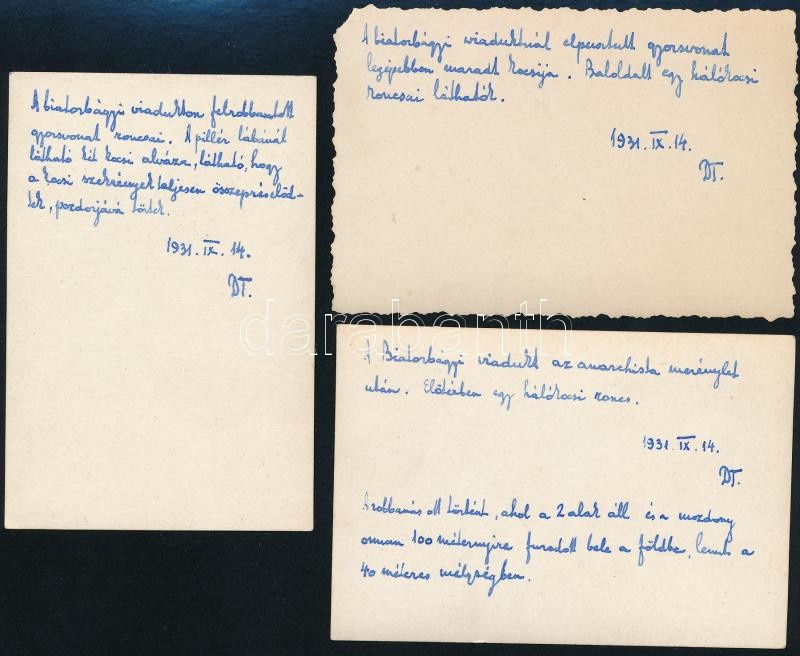 A biatorbágyi viadukton felrobbantott
gyorsvonat roncsai. A pillér lábánál
látható két kocsi alváza, látható, hogy
a kocsi szekrények teljesen összepréselőd-
tek, pozdorjává törtek.
1931. IX. 14.
DT.
A biatorbágyi viaduktnál elpusztult gyorsvonat
legépebben maradt kocsija. Baloldalt egy hálókocsi
roncsai láthatók.
1931. IX. 14.
DT.
A Biatorbágyi viadukt az anarchista merénylet
után. Előtérben egy hálókocsi roncs.
1931. IX. 14.
DT.
A robbanás ott történt, ahol a 2 alak áll és a mozdony
onnan 100 méternyire furódott bele a földbe, lenn a
40 méteres mélységben.
darabanth